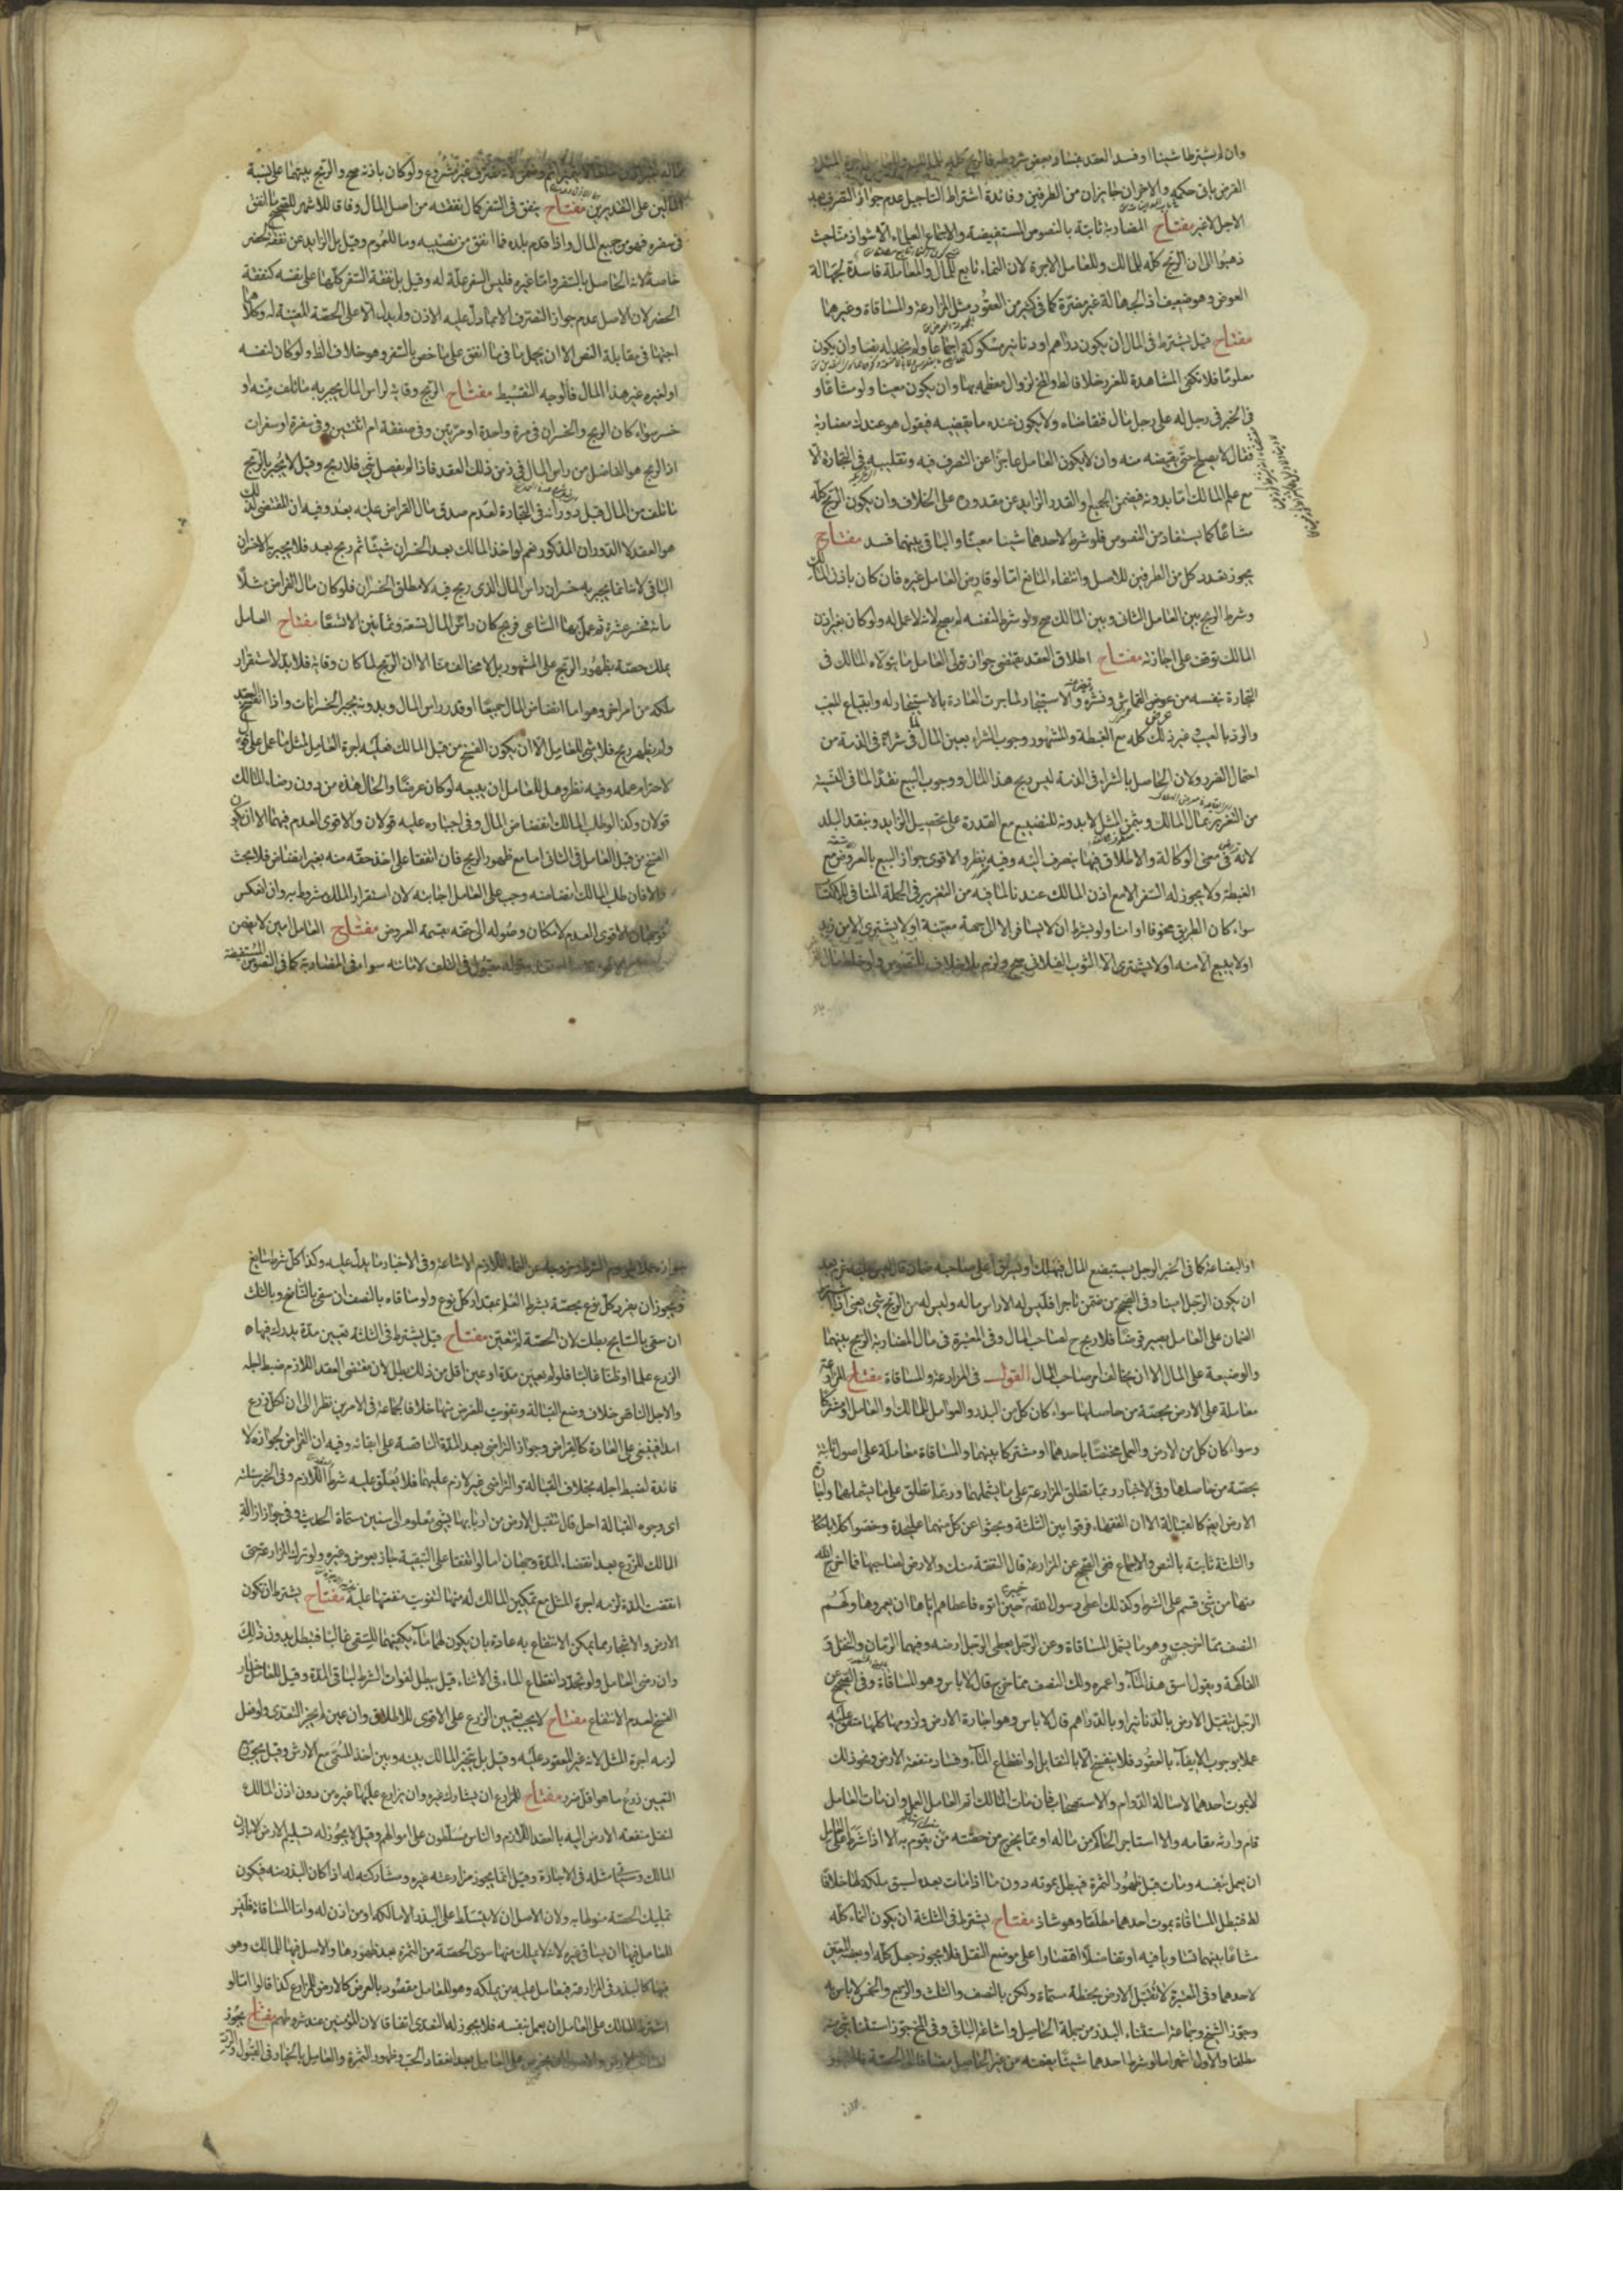 وان لم يشترطا شيئا او فسد العقد
القرض باق حكمه والاخران جايزان من الطرفين وفائدة اشتراط التاجيل عدم جواز التصرف بعد
الاجل لا غير مفتاح المضاربة ثابتة بالنصوص المستفيضة والاجماع العلماء الا شواذ منا حيث
ذهبوا الى ان الربح كله للمالك وللعامل الاجرة لان النماء تابع للمال والمعاملة فاسدة لجهالة
العوض وهو ضعيف اذ الجهالة غير مضرة كما فى كثير من العقود مثل المزارعة والمساقاة وغيرهما
مفتاح قيل يشترط فى المال ان يكون دراهم او دنانير مسكوكة اجماعا ولم نجد له نصا وان يكون
معلوما فلا تكفى المشاهدة للغرر خلافا لط والمخ لزوال معظمه بها وان يكون معينا ولو مشاعا و
فى الخبر فى رجل له على رجل مال فتقاضاه ولا يكون عنده ما يقضيه فيقول هو عندك مضاربة
فقال لا يصلح حتى يقبضه منه وان لا يكون العامل عاجزا عن التصرف فيه وتقليبه فى التجارة الا
مع علم المالك اما بدونه فيضمن الجميع او القدر الزايد عن مقدوره على الخلاف وان يكون الربح كله
مشاعا كما يستفاد من النصوص فلو شرط لاحدهما شيئا معينا والباقى بينهما فسد مفتاح
يجوز تعدد كل من الطرفين للاصل وانتفاء المانع اما لو قارض العامل غيره فان كان باذن المالك
وشرط الربح بين العامل الثانى وبين المالك صح ولو شرط لنفسه لم يصح لانه لا عمل له ولو كان بغير اذن
المالك توقف على اجازته مفتاح اطلاق العقد يقتضى جواز تولى العامل ما يتولاه المالك فى
التجارة بنفسه من عرض القماش ونشره والاستيجار لما جرت العادة بالاستيجار له وابتياع المعيب
والرد بالعيب وغير ذلك كله مع الغبطة والمشهور وجوب الشراء بعين المال لما فى شرائه فى الذمة من
احتمال الضرر ولان الحاصل بالشراء فى الذمة ليس ربح هذا المال ووجوب البيع نقدا لما فى النسية
من التغرير بمال المالك وبثمن المثل لا بدونه للتضييع مع القدرة على تحصيل الزايد وبنقد البلد
لانه فى معنى الوكالة والاطلاق فيها ينصرف اليه وفيه نظر والاقوى جواز البيع بالعروض مع
الغبطة ولا يجوز له السفر الا مع اذن المالك عندنا لما فيه من التغرير فى الجملة المنافى للاكتساب
سواء كان الطريق مخوفا او امنا ولو شرط ان لا يسافر الا الى جهة معينة او لا يشترى الا من زيد
او لا يبيع الا منه او لا يشترى الا الثوب الفلانى صح ولزم بلا خلاف للنصوص ولو خلط مال
ولو كان باذنه صح والربح بينهما على نسبة
المالين على التقديرين مفتاح ينفق فى السفر كمال نفقته من اصل المال وفاقا للاشهر للصحيح ما انفق
فى سفره فهو من جميع المال واذا قدم بلده فما انفق من نصيبه وما للعموم وقيل بل الزايد عن نفقة الحضر
خاصة لانه الحاصل بالسفر واما غيره فليس السفر علة له وقيل بل نفقة السفر كلها على نفسه كنفقة
الحضر لان الاصل عدم جواز التصرف الا بما دل عليه الاذن ولم يدل الا على الحصة المعينة له وكلاهما
اجتهاد فى مقابلة النص الا ان يحمل ما فى ما انفق على ما خص بالسفر وهو خلاف الظ ولو كان لنفسه
او لغيره غير هذا المال فالوجه التقسيط مفتاح الربح وقاية لراس المال يجبر به ما تلف منه او
خسر سواء كان الربح والخسران فى مرة واحدة او مرتين وفى صفقة ام اثنتين وفى سفرة او سفرات
اذ الربح هو الفاضل من راس المال فى زمن ذلك العقد فاذا لم يفضل شئ فلا ربح وقيل لا يجبر بالربح
ما تلف من المال قبل دورانه فى التجارة لعدم صدق مال القراض عليه بعد وفيه ان المقتضى لذلك
هو العقد لا الدوران المذكور نعم لو اخذ المالك بعد الخسران شيئا ثم ربح بعد فلا يجبر بالاخران
الباقى لانه انما يجبر به خسران راس المال الذى ربح فيه لا مطلق الخسران فلو كان مال القراض مثلا
مائة فخسر عشرة ثم عمل بها الساعى فربح كان راس المال تسعة وثمانين الا تسعا مفتاح العامل
يملك حصته بظهور الربح على المشهور بل لا مخالف منا الا ان الربح لما كان وقاية فلا بد لاستقرار
ملكه من امر اخر وهو اما انضاض المال جميعا او قدر راس المال وبدونه يجبر الخسرانات واذا انفسخ العقد
ولم يظهر ربح فلا شئ للعامل الا ان يكون الفسخ من قبل المالك فعليه اجرة العامل لمثل ما عمل على
لاحترام عمله وفيه نظر وهل للعامل ان يبيعه لو كان عرضا والحال هذه من دون رضاء المالك
قولان وكذا لو طلب المالك انضاض المال وفى اجباره عليه قولان والاقوى العدم فيهما الا ان يكون
الفسخ من قبل العامل فى الثانى اما مع ظهور الربح فان اتفقا على اخذ حقه منه بغير انضاض فلا بحث
والا فان طلب المالك انضاضه وجب على العامل اجابته لان استقرار الملك مشروط به وان انعكس
فوجهان والاقوى العدم لامكان وصوله الى حقه بقسمة العروض مفتاح العامل امين لا يضمن
مقبول فى التلف لامانته سواء فى المضاربة كما فى النصوص المستفيضة
او البضاعة كما فى الخبر الرجل يستبضع المال فيهلك او يسرق اعلى صاحبه ضمان قال ليس عليه غرم بعد
ان يكون الرجل امينا وفى الصحيح من ضمن تاجرا فليس له الا راس ماله وليس له من الربح شئ يعنى اذا اشترط
الضمان على العامل يصير قرضا فلا ربح لصاحب المال وفى المعتبرة فى مال المضاربة الربح بينهما
والوضيعة على المال الا ان يخالف امر صاحب المال القول فى المزارعة والمساقاة مفتاح المزارعة
معاملة على الارض بحصة من حاصلها سواء كان كل من البذر والعوامل للمالك او العامل او مشتركا
وسواء كان كل من الارض والعمل مختصا باحدهما او مشتركا بينهما والمساقاة معاملة على اصول ثابتة
بحصة من حاصلها وفى الاخبار ربما تطلق المزارعة على ما يشملهما وربما تطلق على ما يشملهما واجارة
الارض ايض كالقبالة الا ان الفقهاء فرقوا بين الثلثة وبحثوا عن كل منهما على حدة وخصوا كلا باحكام
والثلثة ثابتة بالنص والاجماع ففى الصحيح عن المزارعة قال النفقة منك والارض لصاحبها فما اخرج الله
منها من شئ قسم على الشرط وكذلك اعطى رسول الله خيبر حين اتوه فاعطاهم اياها ان يعمروها ولهم
النصف مما اخرجت وهو ما يشمل المساقاة وعن الرجل يعطى الرجل ارضه وفيها الرمان والنخل و
الفاكهة ويقول اسق هذا الماء واعمره ولك النصف مما خرج قال لا باس وهو المساقاة وفى الصحيح عن
الرجل يتقبل الارض بالدنانير او بالدراهم قال لا باس وهو اجارة الارض ولزومها كلها متفق عليه
عملا بوجوب الايفاء بالعقود فلا ينفسخ الا بالتقايل او انقطاع الماء وفساد منفعة الارض ونحو ذلك
لا بموت احدهما لاصالة الدوام والاستصحاب فان مات المالك اتم العامل العمل وان مات العامل
قام وارثه مقامه والا استاجر الحاكم من ماله او مما يخرج من حصته من يقوم به الا اذا شرط على العامل
ان يعمل بنفسه ومات قبل ظهور الثمرة فيبطل بموته دون ما اذا مات بعده لسبق ملكه لها خلافا
لط فتبطل المساقاة بموت احدهما مطلقا وهو شاذ مفتاح يشترط فى الثلثة ان يكون النماء كله
مشاعا بينهما تساويا فيه او تفاضلا اقتصارا على موضع النقل فلا يجوز جعل كله او بعضه المعين
لاحدهما وفى المعتبرة لا تقبل الارض بحنطة مسماة ولكن بالنصف والثلث والربع والخمس لا باس به
وجوز الشيخ وجماعة استثناء البذر من جملة الحاصل واشاعة الباقى وفى المخ جوز استثناء شئ منه
مطلقا والاول اشهر اما لو شرط احدهما شيئا يضمنه من غير الحاصل مضافا الى الحصة فالمشهور
جوازه خلافا لعموم الشرط وخروجه عن النماء اللازم الاشاعة وفى الاخبار ما يدل عليه وكذا كل شرط سايغ
ويجوز ان يفرد كل نوع بحصة بشرط العلم بمقدار كل نوع ولو ساقاه بالنصف ان سقى بالناضح وبالثلث
ان سقى بالسايح بطلت لان الحصة لم تتعين مفتاح قيل يشترط فى الثلثة تعيين مدة يدرك فيها
الزرع علما او ظنا غالبا فلو لم يعين مدة او عين اقل من ذلك بطل لان مقتضى العقد اللازم ضبط اجله
والاجل الناقص خلاف وضع القبالة وتفويت للغرض منها خلافا لجماعة فى الامرين نظرا الى ان لكل زرع
امدا فيبنى على العادة كالقراض وجواز التراضى بعد المدة الناقصة على ابقائه وفيه ان القراض لجوازه لا
فائدة لضبط اجله بخلاف القبالة والتراضى غير لازم عليهما فلا يعلق عليه شرط اللازم وفى الخبر سئلته
اى وجوه القبالة احل قال تتقبل الارض من اربابها بشئ معلوم الى سنين مسماة الحديث وفى جواز ازالة
المالك للزرع بعد انقضاء المدة وجهان اما لو اتفقا على التبقية جاز بعوض وغيره ولو ترك المزارعة حتى
انقضت المدة لزمه اجرة المثل مع تمكين المالك له منها لتفويت منفعتها عليه مفتاح يشترط ان تكون
الارض والاشجار مما يمكن الانتفاع به عادة بان يكون لها ماء يكفيها للسقى غالبا فتبطل بدون ذلك
وان رضى العامل ولو تجدد انقطاع الماء فى الاثناء قيل يبطل لفوات الشرط لباقى المدة وقيل للعامل خيار
الفسخ لعدم الانتفاع مفتاح لا يجب تعيين الزرع على الاقوى للاطلاق وان عين لم يجز التعدى ولو فعل
لزمه اجرة المثل لانه غير المعقود عليه وقيل بل يتخير المالك بينه وبين اخذ المسمى مع الارش وقيل يجوز فى
التعيين زرع ما هو اقل ضرر مفتاح للزارع ان يشارك غيره وان يزارع عليها غيره من دون اذن المالك
لنقل منفعة الارض اليه بالعقد اللازم والناس مسلطون على اموالهم وقيل لا يجوز له تسليم الارض الا باذن
المالك وسيجئ مثله فى الاجارة وقيل انما يجوز مزارعة غيره ومشاركته له اذا كان البذر منه فيكون
تمليك الحصة منوطا به ولان الاصل ان لا يتسلط على البذر الا مالكه او من اذن له واما المساقاة فليس
للعامل فيها ان يساقى غيره لانه لا يملك منها سوى الحصة من الثمرة بعد ظهورها والاصل فيها للمالك وهو
فيها كالبذر فى المزارعة فيعامل عليه من يملكه وهو للعامل مقصود بالعرض كالارض للزارع كذا قالوا اما لو
اشترط المالك على العامل ان يعمل بنفسه فلا يجوز له التعدى اتفاقا لان المؤمنين عند شروطهم مفتاح يجوز
لصاحب الارض والاصول ان يخرص على العامل بعد انعقاد الحب وظهور الثمرة والعامل بالخيار فى القبول والرد